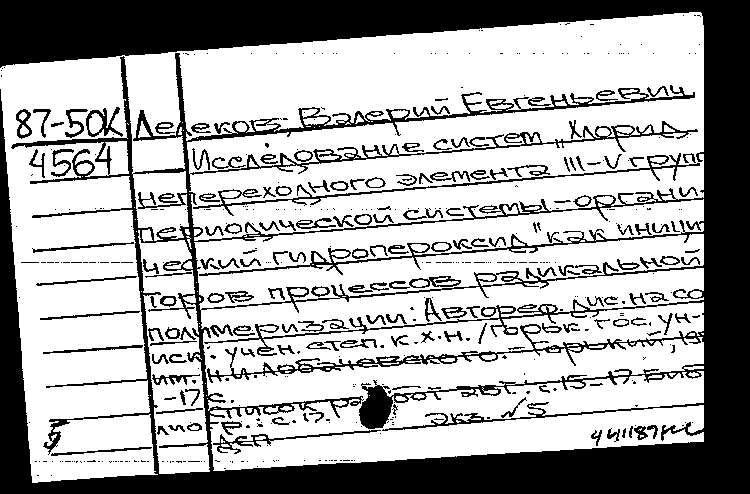 87-50К Лелеков, Валерий Евгеньевич
4564 Исследование систем „Хлорид
непереходного элемента III-V групп
периодической системы-органи-
ческий гидропероксид" как иници
торов процессов радикальной
полимеризации: Автореф. дис. на со
иск. учен. степ. к.х.н. / Горьк. гос. ун-
им. Н.И. Лобачевского. - Горький, 198
-17 с.
Список работ авт.: с.15-17. Биб
лиогр.: с.
Деп Экз. √5
5